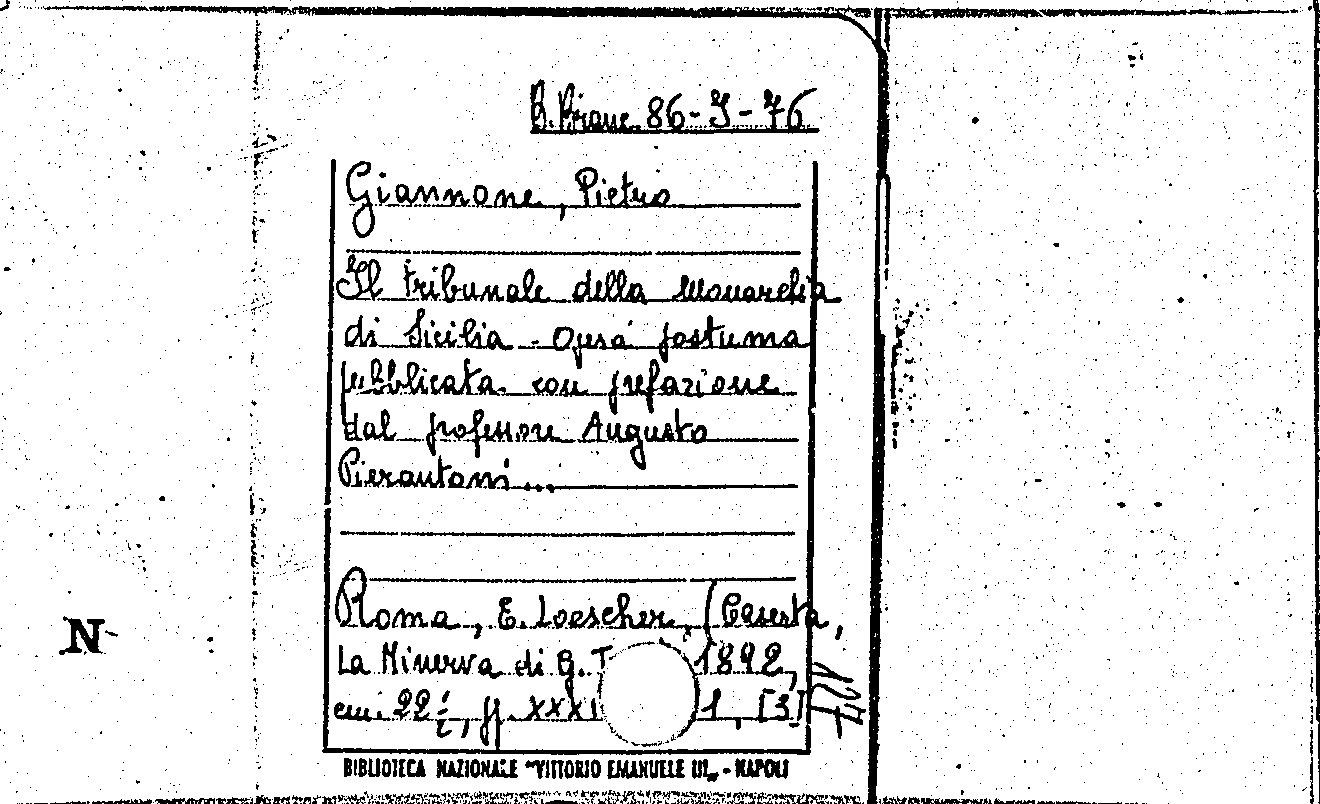 B. Branc. 86-J-76
Giannone, Pietro
Il tribunale della Monarchia
di Sicilia - Opera postuma
pubblicata con prefazione
dal professore Augusto
Pierantoni...
Roma, E. Loescher, (Caserta,
La Minerva di G. T 1892,
cm. 22½, pp. XXXI 1, [3]
N
BIBLIOTECA NAZIONALE "VITTORIO EMANUELE III„ - NAPOLI